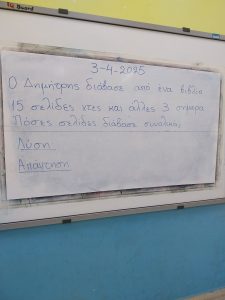 IQ Board
3-4-2025
Ο Δημήτρης διάβασε από ένα βιβλίο
15 σελίδες χτες και άλλες 3 σήμερα
Πόσες σελίδες διάβασε συνολικά;
Λύση:
Απάντηση